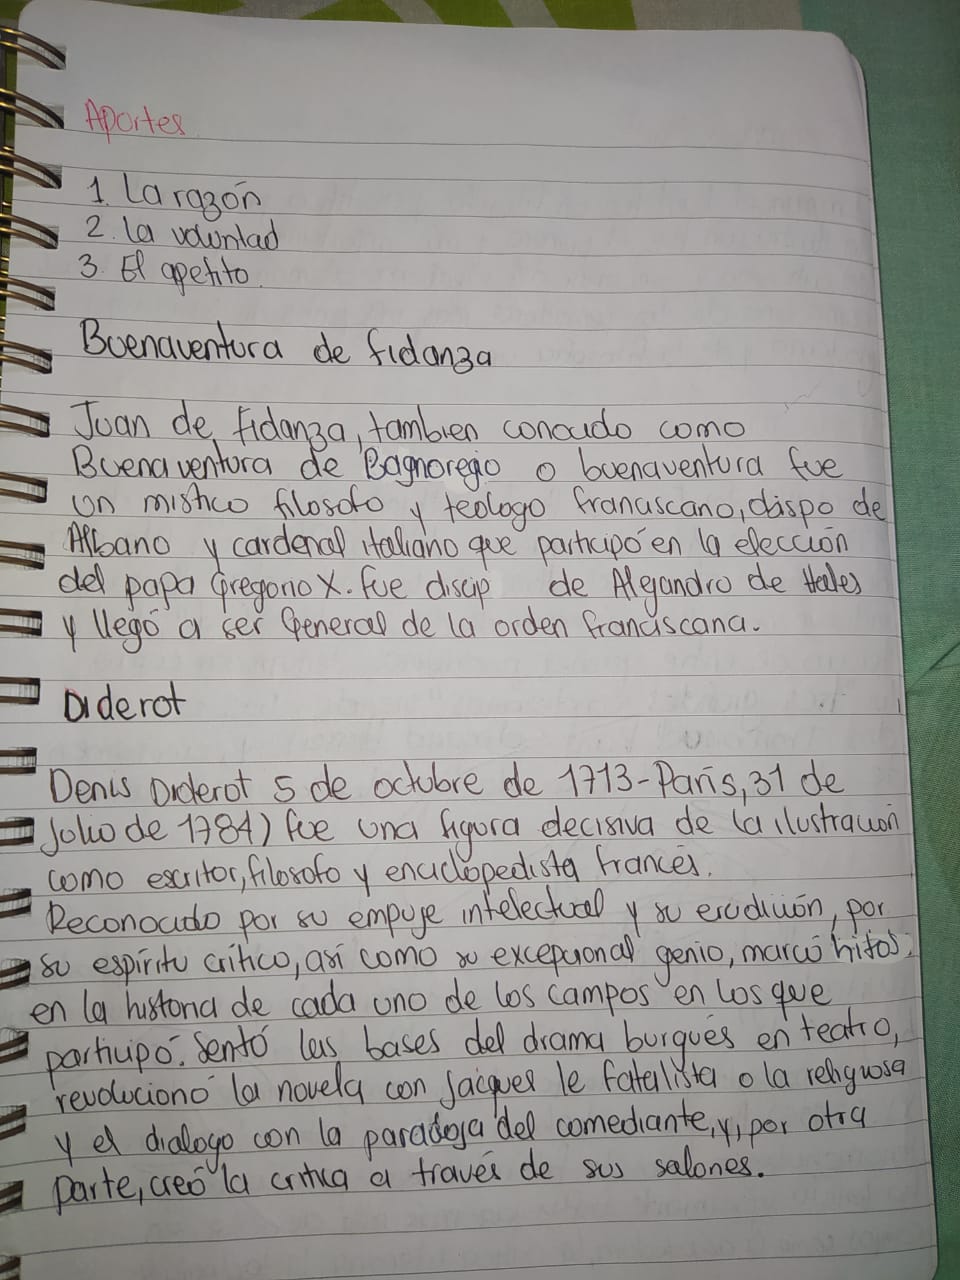 Aportes
1. La razón
2. la voluntad
3. El apetito.
Buenaventura de fidanza
Juan de fidanza, tambien conocido como
Buenaventura de Bagnoregio o buenaventura fue
un mistico filosofo y teologo franciscano, obispo de
Albano y cardenal italiano que participó en la elección
del papa Gregorio X. fue discip de Alejandro de Hales
y llegó a ser General de la orden franciscana.
Diderot
Denis Diderot 5 de octubre de 1713-París, 31 de
Julio de 1784) fue una figura decisiva de la ilustración
como escritor, filosofo y enciclopedista francés.
Reconocido por su empuje intelectual y su erudición, por
su espíritu crítico, así como su excepcional genio, marcó hitos
en la historia de cada uno de los campos en los que
participó. Sentó las bases del drama burgués en teatro,
revolucionó la novela con Jacques le fatalista o la religiosa
y el dialogo con la paradoja del comediante, y, por otra
parte, creó la critica a través de sus salones.